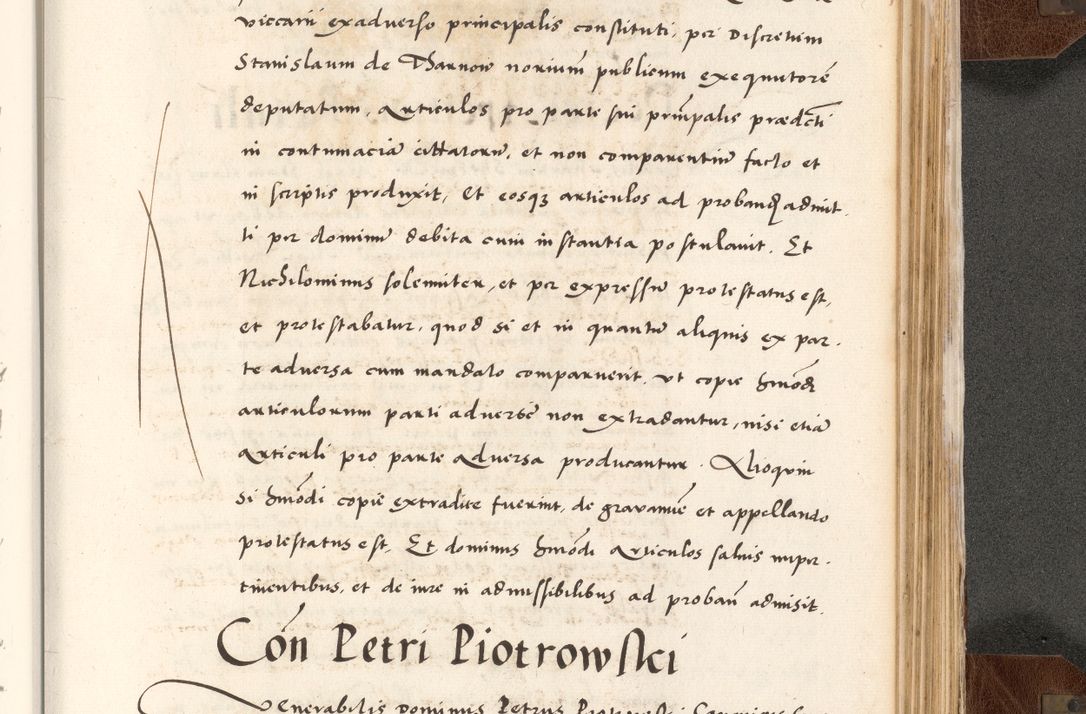 viccarii exadverso principalis constituti, per Discretum
Stanislaum de Tharnow norium publicum exequutorē
deputatum, Articulos pro parte sui prīnpalis prædcti
in contumaciā cittatorū, et non comparentiū facto et
in scriptis produxit, Et eosqꝫ articulos ad probandꝫ admit-
ti per dominū debita cum instantia postulavit. Et
Nichilominus solemniter, et per expressū protestatus est,
et protestabatur, quod si et in quantū aliquis ex par-
te adversa cum mandato comparuerit, ut copie hmōdi
articulorum parti adversē non extradantur, nisi etiā
Articuli pro parte Adversa producantur. Alioquin
Si hmōdi copie extradite fuerint, de gravamīe et appellando
protestatus est. Et dominus hmōdi Articulos salvis imper-
tinentibus, et de iure in admissibilibus ad probañ admisit.
Con̄ Petri Piotrowski
Venerabilis Dominus Petrus Piotrowski